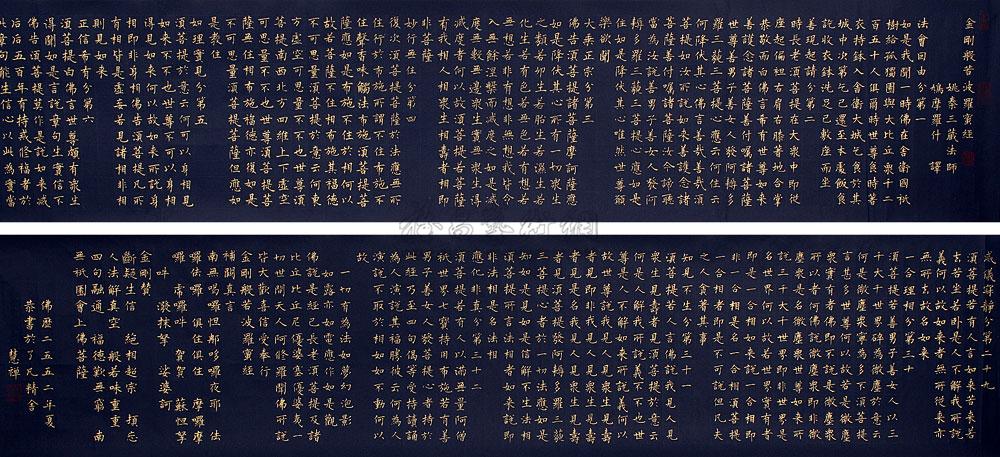 金剛般若波羅蜜經
姚秦三藏法師
鳩摩羅什 譯
法會因由分第一
如是我聞一時佛在舍衛國祇
樹給孤獨園與大比丘眾千二
百五十人俱爾時世尊食時著
衣持鉢入舍衛大城乞食於其
城中次第乞已還至本處飯食
訖收衣鉢洗足已敷座而坐
善現起請分第二
時長老須菩提在大眾中即從
座起偏袒右肩右膝著地合掌
恭敬而白佛言希有世尊如來
善護念諸菩薩善付囑諸菩薩
世尊善男子善女人發阿耨多
羅三藐三菩提心應云何住云
何降伏其心佛言善哉善哉須
菩提如汝所說如來善護念諸
菩薩善付囑諸菩薩汝今諦聽
當為汝說善男子善女人發阿
耨多羅三藐三菩提心應如是
住如是降伏其心唯然世尊願
樂欲聞
大乘正宗分第三
佛告須菩提諸菩薩摩訶薩應
如是降伏其心所有一切眾生
之類若卵生若胎生若濕生若
化生若有色若無色若有想若
無想若非有想非無想我皆令
入無餘涅槃而滅度之如是滅
度無量無數無邊眾生實無眾生得
滅度者何以故須菩提若菩薩
有我相人相眾生相壽者相即
非菩薩
妙行無住分第四
復次須菩提菩薩於法應無所
住行於布施所謂不住色布施不
住聲香味觸法布施須菩提菩
薩應如是布施不住於相何以
故若菩薩不住相布施其福德
不可思量須菩提於意云何東
方虛空可思量不不也世尊須
菩提南西北方四維上下虛空
可思量不不也世尊須菩提菩
薩無住相布施福德亦復如是
不可思量須菩提菩薩但應如
教住
如理實見分第五
須菩提於意云何可以身相
見如來不不也世尊不可以身相
得見如來何以故如來所說身
相即非身相佛告須菩提凡所
有相皆是虛妄若見諸相非相
則見如來
正信希有分第六
須菩提白佛言世尊頗有眾生
得聞如是言說章句生實信不
佛告須菩提莫作是說如來滅
后后五百年有持戒修福者於
此章句能生信心以此為實當
威儀寂靜分第二十九
須菩提若有人言如來若來若
去若坐若臥是人不解我所說
義何以故如來者無所從來亦
無所去故名如來
一合理相分第三十
須菩提若善男子善女人以三
千大千世界碎為微塵於意云
何是微塵眾寧為多不
甚多世尊何以故若是微塵
眾實有者佛即不說是微塵
眾所以者何佛說微塵眾即非微塵
眾是名微塵眾世尊如來所
說三千大千世界即非世界是
名世界何以故若世界實有者
即是一合相如來說一合相即非
一合相是名一合相須菩提
一合相者即是不可說但凡夫
之人貪著其事
知見不生分第三十一
須菩提若人言佛說我見人見
眾生見壽者見須菩提於意云
何是人解我所說義不不也世
尊是人不解如來所說義何以
故世尊說我見人見眾生見壽
者見即非我見人見眾生見壽
者見是名我見人見眾生見壽
者見須菩提發阿耨多羅三藐
三菩提心者於一切法應如是
知如是見如是信解不生法相
須菩提所言法相者如來說即
非法相是名法相
應化非真分第三十二
須菩提若有人以滿無量阿僧
祇世界七寶持用布施若有善
男子善女人發菩提心者持於
此經乃至四句偈等受持讀誦
為人演說其福勝彼云何為人
演說不取於相如如不動何以
故
一切有為法如夢幻泡影
如露亦如電應作如是觀
佛說是經已長老須菩提及諸
比丘比丘尼優婆塞優婆夷一
切世間天人阿修羅聞佛所說
皆大歡喜信受奉行
金剛般若波羅蜜經
補闕真言
南無喝囉怛那哆囉夜耶 佉
囉佉囉 俱住俱住 摩囉摩
囉 虎囉吽 賀賀 蘇怛拏
吽 潑抹拏 娑婆訶
金剛贊
斷疑生信 絕相超宗 頓忘
人法解真空 般若味重重
四句融通 福德歎無窮 南
無祇園會上佛菩薩
佛曆二五五二年夏
恭書於了凡精舍
慧禪